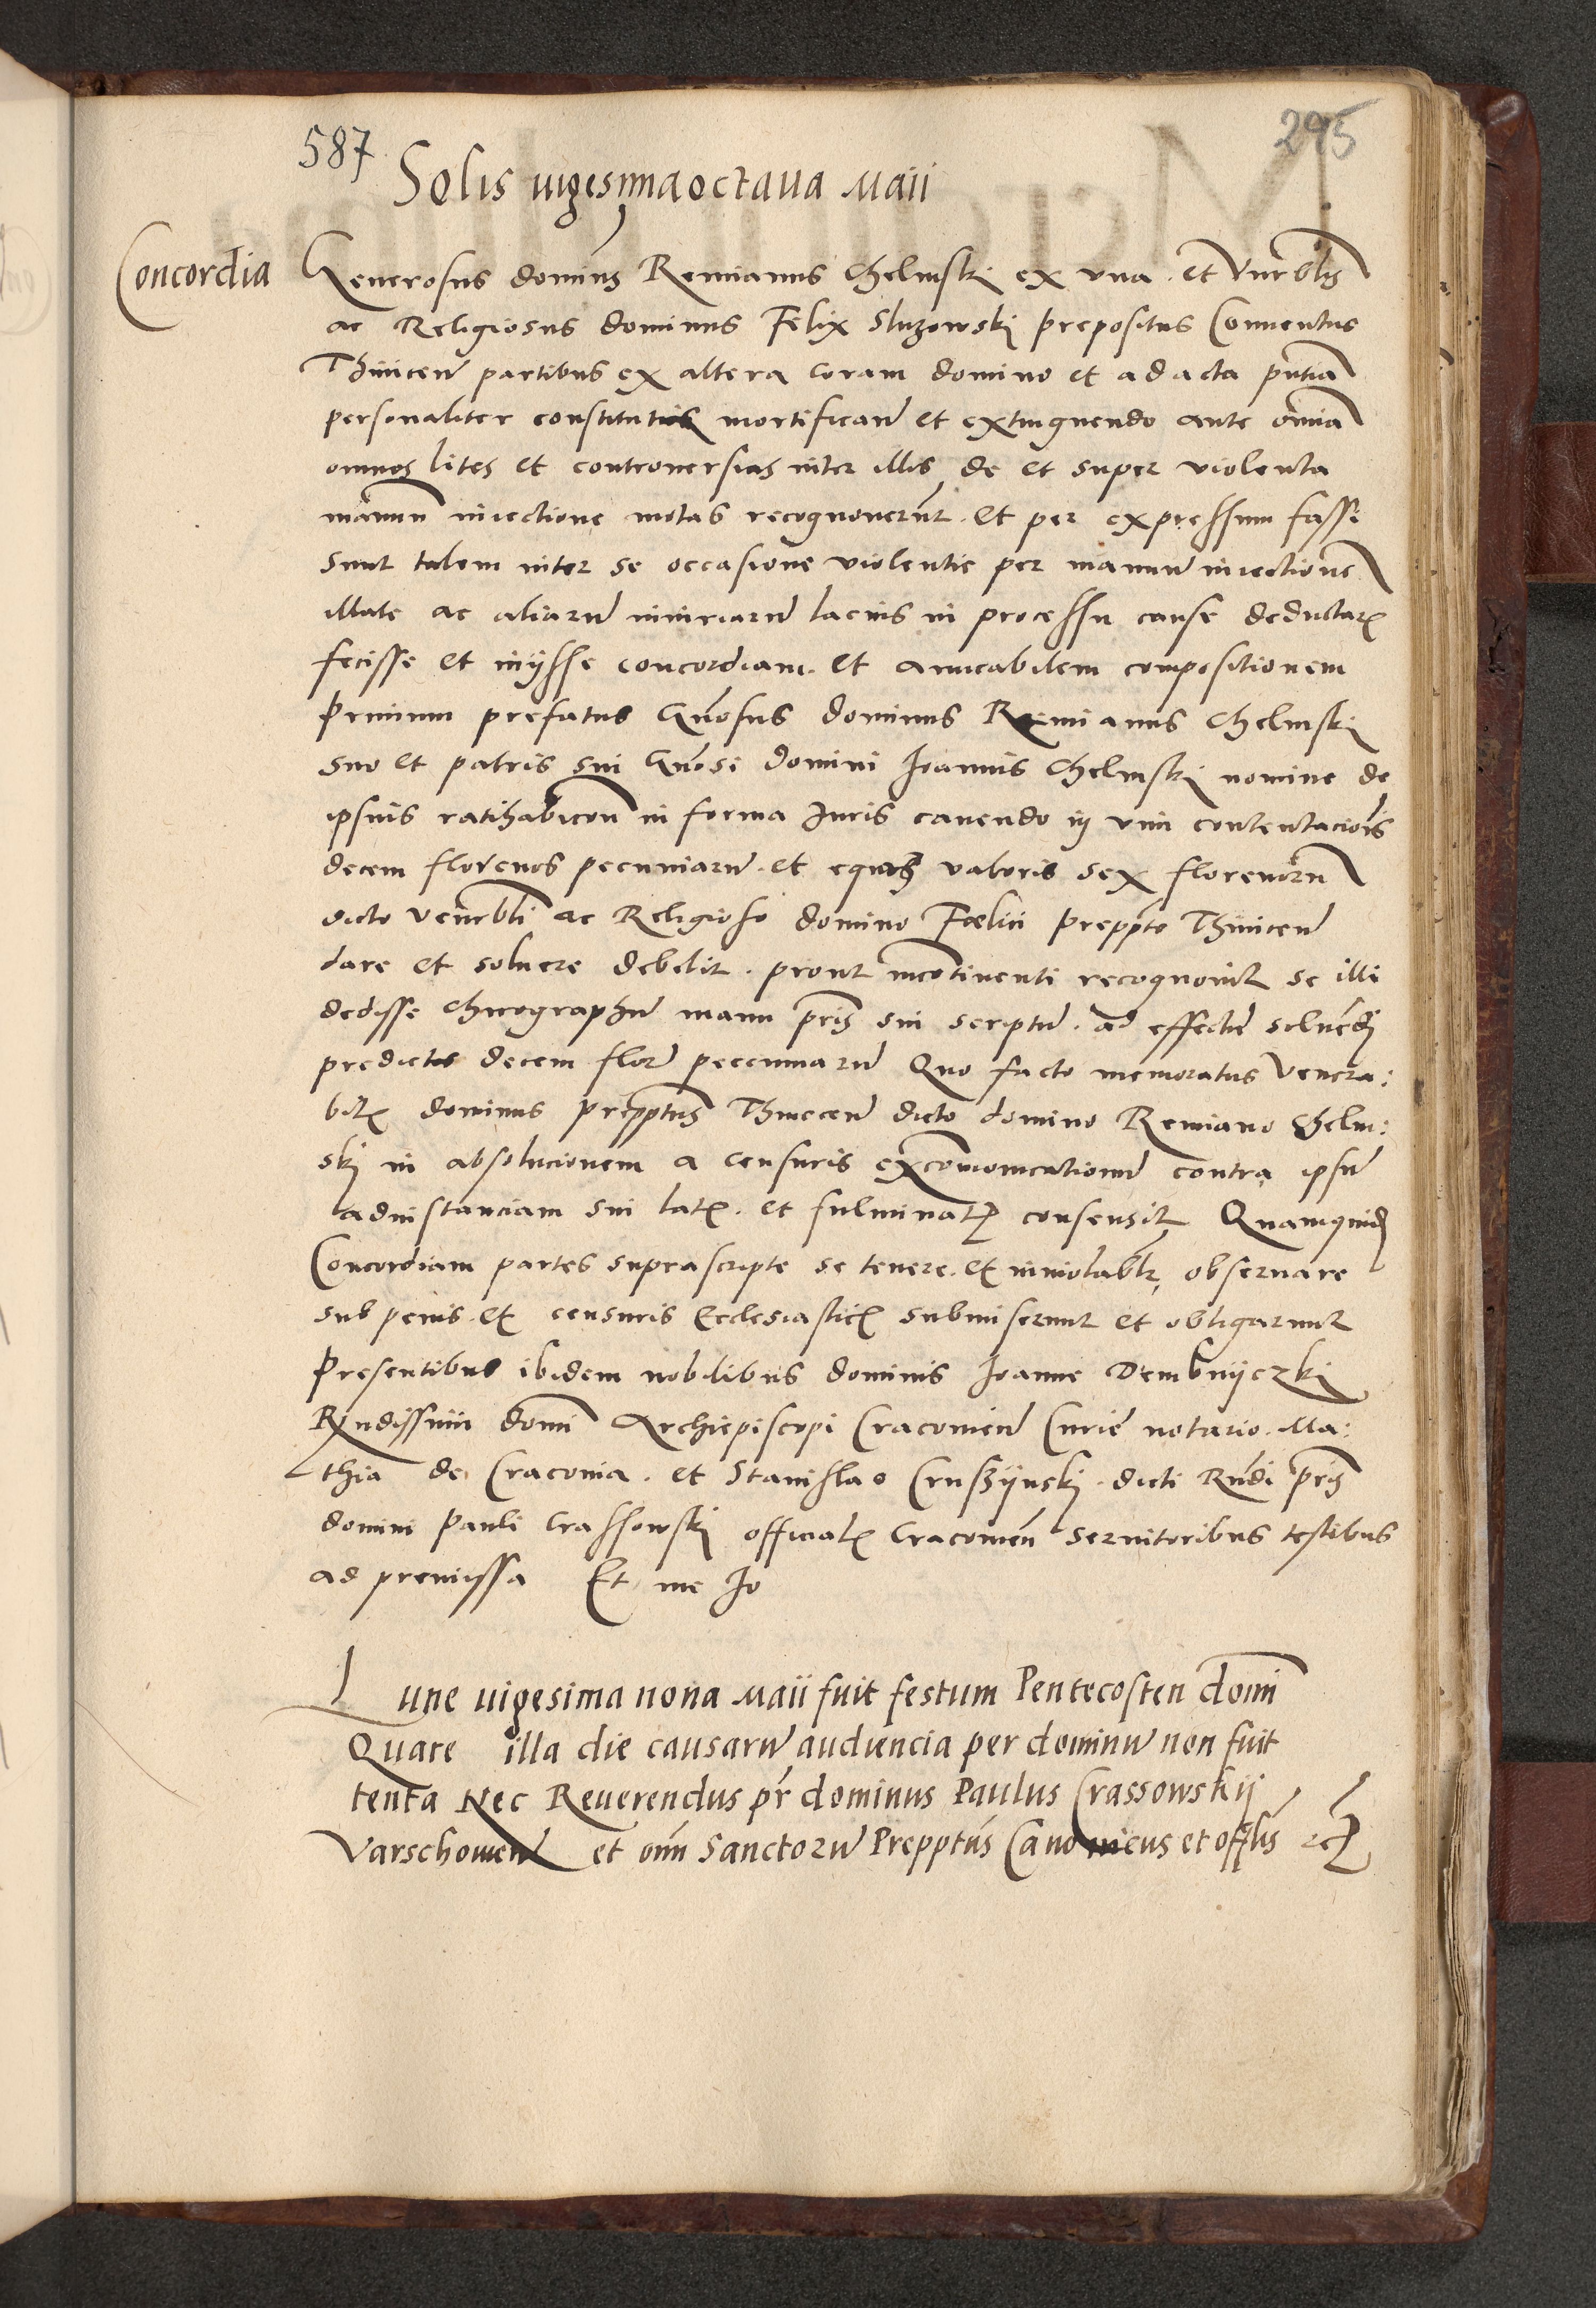 587
295
Solis uigesimaoctaua Maii
Concordia
Generosus dominus Remianus Chelmskj ex vna. et Venrblis
ac Religiosus dominus Felix Sluzowskj prepositus Conuentus
Thinicen partibus ex altera coram domino et ad acta pntia
personaliter constitutis mortifican et extinguendo ante omnia
omnes lites et controuersias inter illis de et super violenta
manuu iniectione motas recognouerunt. et per expressum fassi
sunt talem inter se occasione violentie per manuu iniectione
illate ac aliaru iniuriaru lacius in processu cause deductar
fecisse et inijsse concordiam. et amicabilem compositionem
Primum prefatus Gnosus dominus Remianus Chelmskj
suo et patris sui Gnosi domini Joannis Chelmskj nomine de
ipsius ratihabicon in forma Juris cauendo in vim contentacionis
decem florenos pecuniaru. et equos valoris sex florenoru
dicto venrbli ac Religioso domino Fœlici preppto Thinicen
dare et soluere debebit. prout incontinenti recognouit se illi
dedisse Chirographu manu pris sui scriptu. ad effectu soluendi
predictos decem flor peccuniaru Quo facto memoratus Venera:
bilis dominus prepptus Thinecen dicto domino Remiano Chelm:
skj in absolucionem a censuris excomunicationu contra ipsu
ad instanciam sui latis. et fulminatis consensit Quamquid
Concordiam partes suprascripte se tenere. et inuiolablr obseruare
sub penis. et censuris Ecclesiasticis submiserunt et obligarunt
Presentibus ibidem nobilibus dominis Joanne Dembnijczkj
Rndissimi domi Archiepiscopi Cracouien Curie notario. Ma:
thia de Cracouia. et Stanislao Cruszijnskj. dicti Rndi pris
domini Pauli Crassowskj officialis Cracouien seruitoribus testibus
ad premissa Et me Jo
Lune uigesima nona Maii fuit festum Pentecosten domi
Quare illa die causaru audiencia per dominu non fuit
tenta Nec Reuerendus pr dominus Paulus Crassowskij
Varschouien et oim Sanctoru Prepptus Canonicus et offlis etc